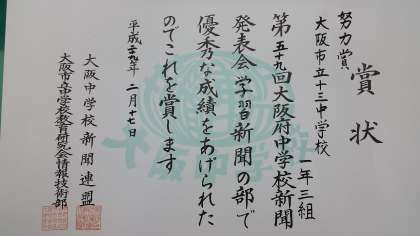 賞状
努力賞
大阪市立十三中学校
一年三組
第五十九回大阪府中学校新聞
発表会学習新聞の部で
優秀な成績をあげられた
のでこれを賞します
平成二九年二月十七日
大阪中学校新聞連盟
大阪市立中学校教育研究会情報技術部